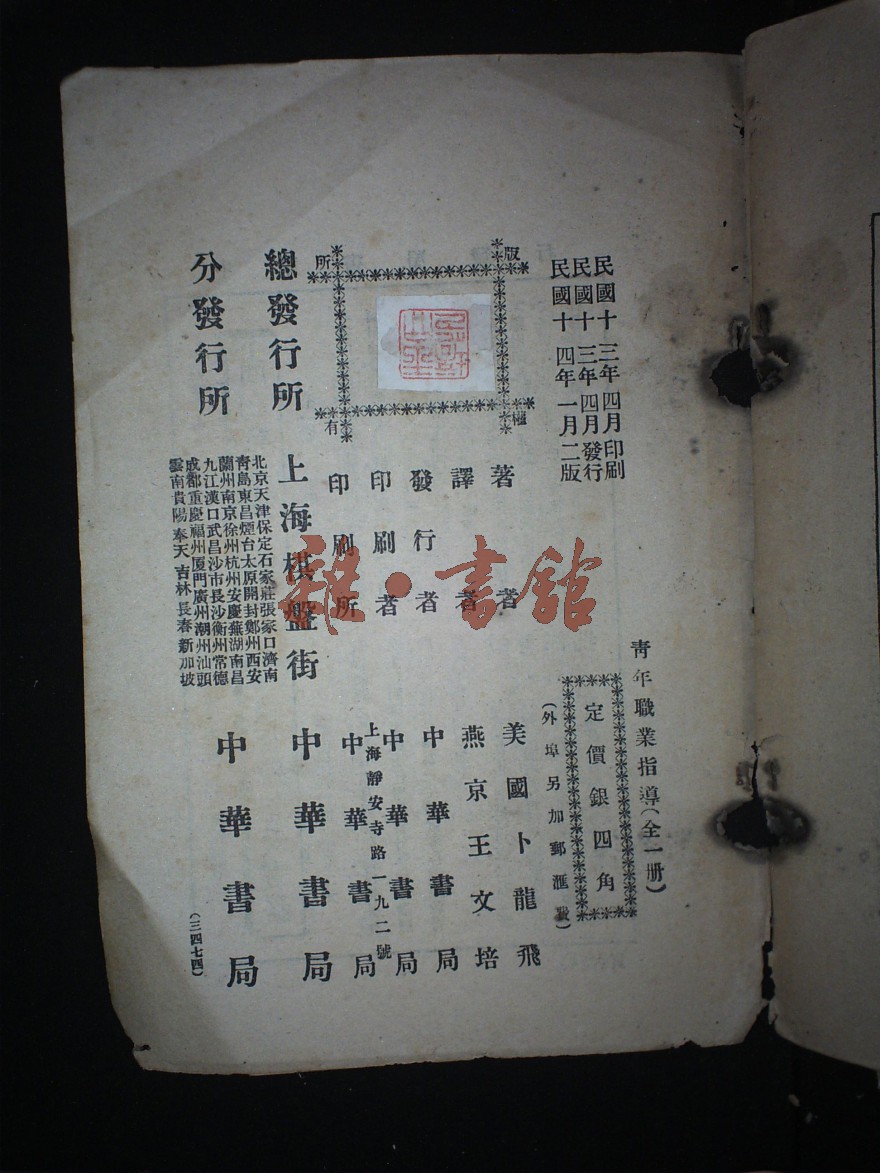 民國十三年四月印刷
民國十三年四月發行
民國十四年一月二版
青年職業指導(全一册)
定價銀四角
(外埠另加郵匯費)
版權所有
著者 美國卜龍飛
譯者 燕京王文培
發行者 中華書局
印刷者 中華書局
印刷所 上海靜安寺路一九二號 中華書局
總發行所 上海棋盤街 中華書局
分發行所 中華書局
北京天津保定石家莊張家口濟南
青島東昌煙台太原開封鄭州西安
蘭州南京徐州杭州安慶蕪湖南昌
九江漢口武昌沙市長沙衡州常德
成都重慶福州廈門廣州潮州汕頭
雲南貴陽奉天吉林長春新加坡
(三四七四)
雜·書館